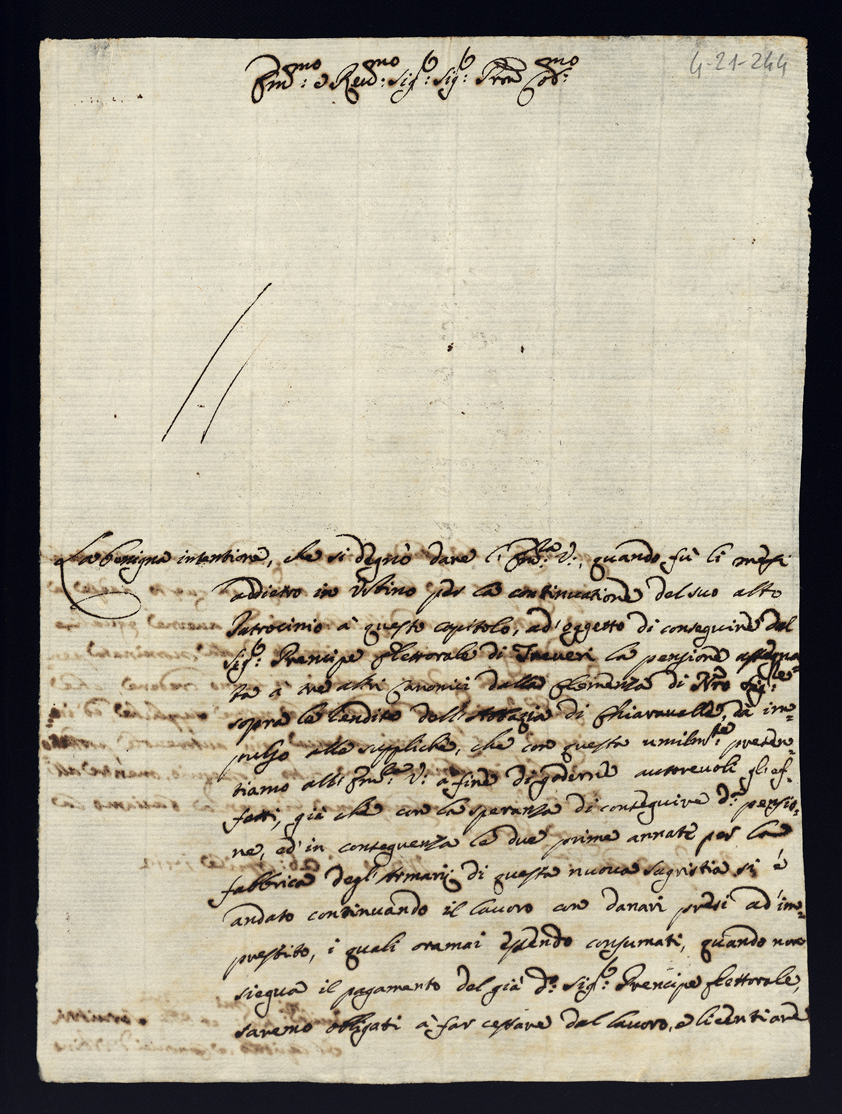 4-21-244
Em.mo e Rev.mo Sig.r Sig.r Pron Col.mo
La benigna intentione, che si degnò dare l'Em.za V., quando fù li mesi
addietro in Urbino per la continuatione del suo alto
Patrocinio à questo capitolo, ad'oggetto di conseguire dal
Sig.r Prencipe Elettorale di Treveri la pensione assegna=
ta à tre altri Canonici dalla Clemenza di Nro Sig.re
sopra le rendite dell'Abbazia di Chiaravalle, dà im=
pulso alle suppliche, che con questa umilm.te presen=
tiamo all'Em.za V. à fine di goderne autorevoli gl'ef=
fetti, già che con la speranza di conseguire d.a pensio=
ne, ed'in conseguenza le due prime annate per la
fabbrica degl'Armarij di questa nuova Sagristia si è
andato continuando il lavoro con danari presi ad'im=
prestito, i quali oramai essendo consumati, quando non
siegua il pagamento del già d.o Sig.r Prencipe Elettorale,
saremo obligati à far cessare dal lavoro, e licentiare